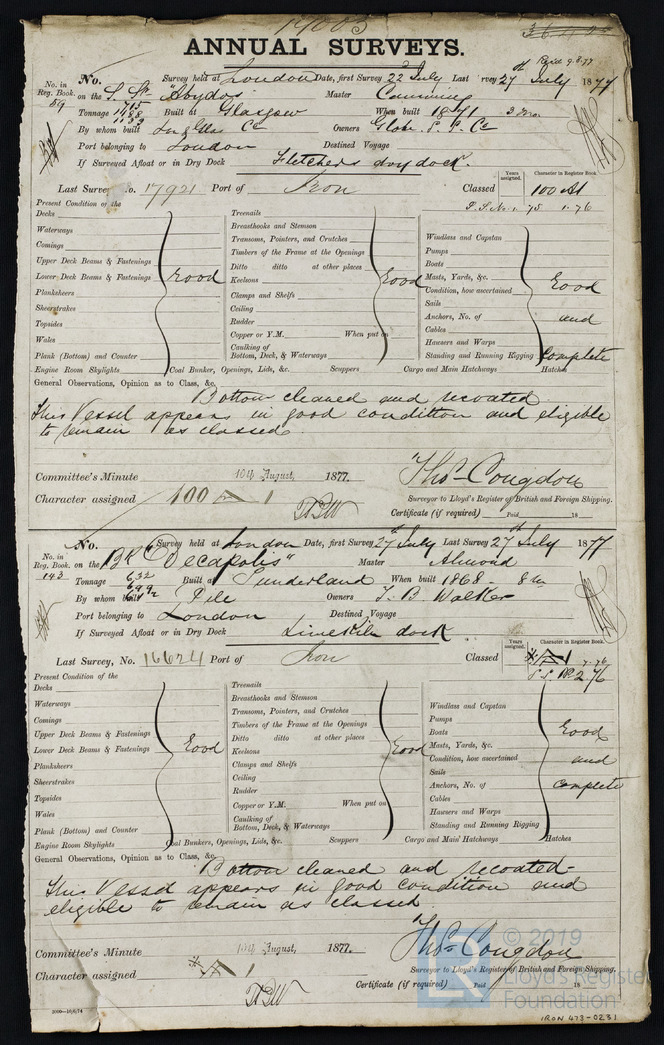 19003
ANNUAL SURVEYS.
No. Survey held at London Date, first Survey 22 July Last Survey 27th July 1877
No. in Reg. Book. 59 on the S. Str "Abydos" Master
Tonnage 715 1488 Built at Glasgow When built 1871 3 mo.
By whom built Lon & Glas Co Owners Globe S. S. Co
Port belonging to London Destined Voyage
If Surveyed Afloat or in Dry Dock Fletchers dry dock.
Years assigned. Character in Register Book.
Last Survey No. 17921 Port of Iron Classed 100 A1
75 1.76
Present Condition of the
Decks
Waterways
Comings
Upper Deck Beams & Fastenings
Lower Deck Beams & Fastenings Good
Planksheers
Sheerstrakes
Topsides
Wales
Plank (Bottom) and Counter
Treenails
Breasthooks and Stemson
Transoms, Pointers, and Crutches
Timbers of the Frame at the Openings
Ditto ditto at other places
Keelsons Good
Clamps and Shelfs
Ceiling
Rudder
Copper or Y.M. When put on
Caulking of Bottom, Deck, & Waterways
Windlass and Capstan
Pumps
Boats
Masts, Yards, &c.
Condition, how ascertained Good
Sails
Anchors, No. of and
Cables
Hawsers and Warps
Standing and Running Rigging Complete
Engine Room Skylights Coal Bunker, Openings, Lids, &c. Scuppers Cargo and Main Hatchways Hatches
General Observations, Opinion as to Class, &c.
Bottom cleaned and recoated.
This Vessel appears in good condition and eligible
to remain as classed
Committee's Minute 10th August, 1877.
Thos Congdon
Character assigned 100 A 1
Surveyor to Lloyd's Register of British and Foreign Shipping.
Certificate (if required) Paid 18
No. Survey held at London Date, first Survey 27th July Last Survey 27th July 1877
No. in Reg. Book. 143 on the BK "Decapolis" Master Atwood
Tonnage 632 699 Built at Sunderland When built 1868 - 8 m
By whom built Pile Owners T. B. Walker
Port belonging to London Destined Voyage
If Surveyed Afloat or in Dry Dock Limekiln dock
Years assigned. Character in Register Book.
Last Survey, No. 16624 Port of Iron Classed 7.76
Present Condition of the
Decks
Waterways
Comings
Upper Deck Beams & Fastenings Good
Lower Deck Beams & Fastenings
Planksheers
Sheerstrakes
Topsides
Wales
Plank (Bottom) and Counter
Treenails
Breasthooks and Stemson
Transoms, Pointers, and Crutches
Timbers of the Frame at the Openings
Ditto ditto at other places Good
Keelsons
Clamps and Shelfs
Ceiling
Rudder
Copper or Y.M. When put on
Caulking of Bottom, Deck, & Waterways
Windlass and Capstan
Pumps
Boats Good
Masts, Yards, &c.
Condition, how ascertained and
Sails
Anchors, No. of complete
Cables
Hawsers and Warps
Standing and Running Rigging
Engine Room Skylights Coal Bunkers, Openings, Lids, &c. Scuppers Cargo and Main Hatchways Hatches
General Observations, Opinion as to Class, &c.
Bottom cleaned and recoated-
This Vessel appears in good condition and
eligible to remain as classed.
Committee's Minute 10th August, 1877.
Thos Congdon
Character assigned A 1
Surveyor to Lloyd's Register of British and Foreign Shipping.
Certificate (if required) Paid 18
© 2019
Lloyd's Register
Foundation
3000—16/6/74
IRON 473-0231